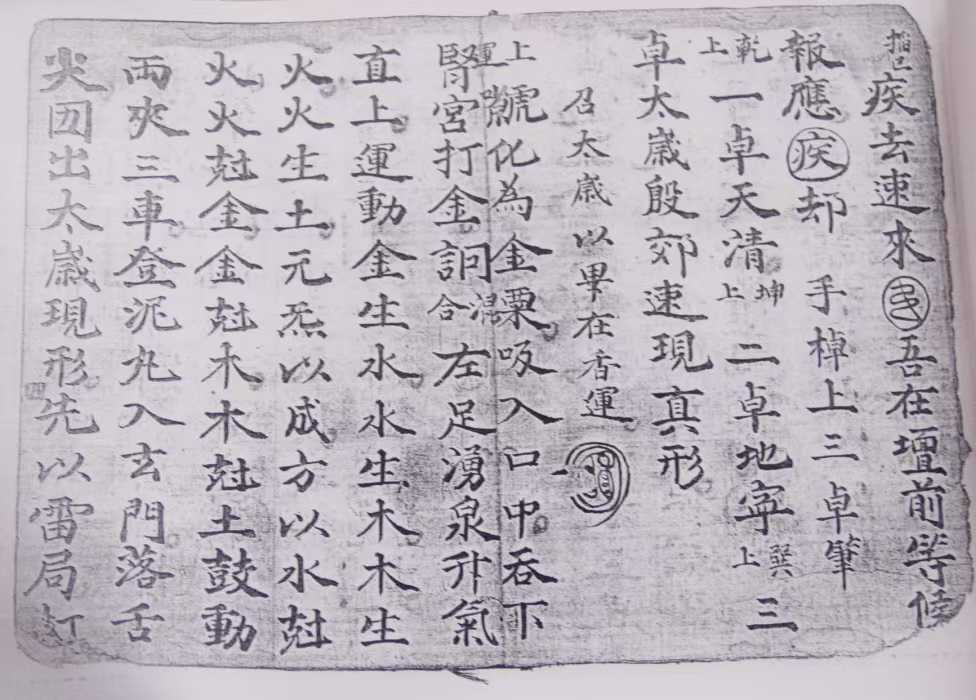 疾去速來吾在壇前等候
報應疾却 手棹上三卓肇
乾上 一卓天清 坤上 二卓地寧 巽上 三
卓太歲殷郊速現真形
召太歲以畢在香運
上號化為金粟吸入口中吞下
腎宮打金訶混合左足湧泉升氣
直上運動金生水水生木木生
火火生土元炁以成方以水尅
火火尅金金尅木木尅土鼓動
両夾三車登泥丸入玄門落舌
尖囙出太歲現形先以雷局打